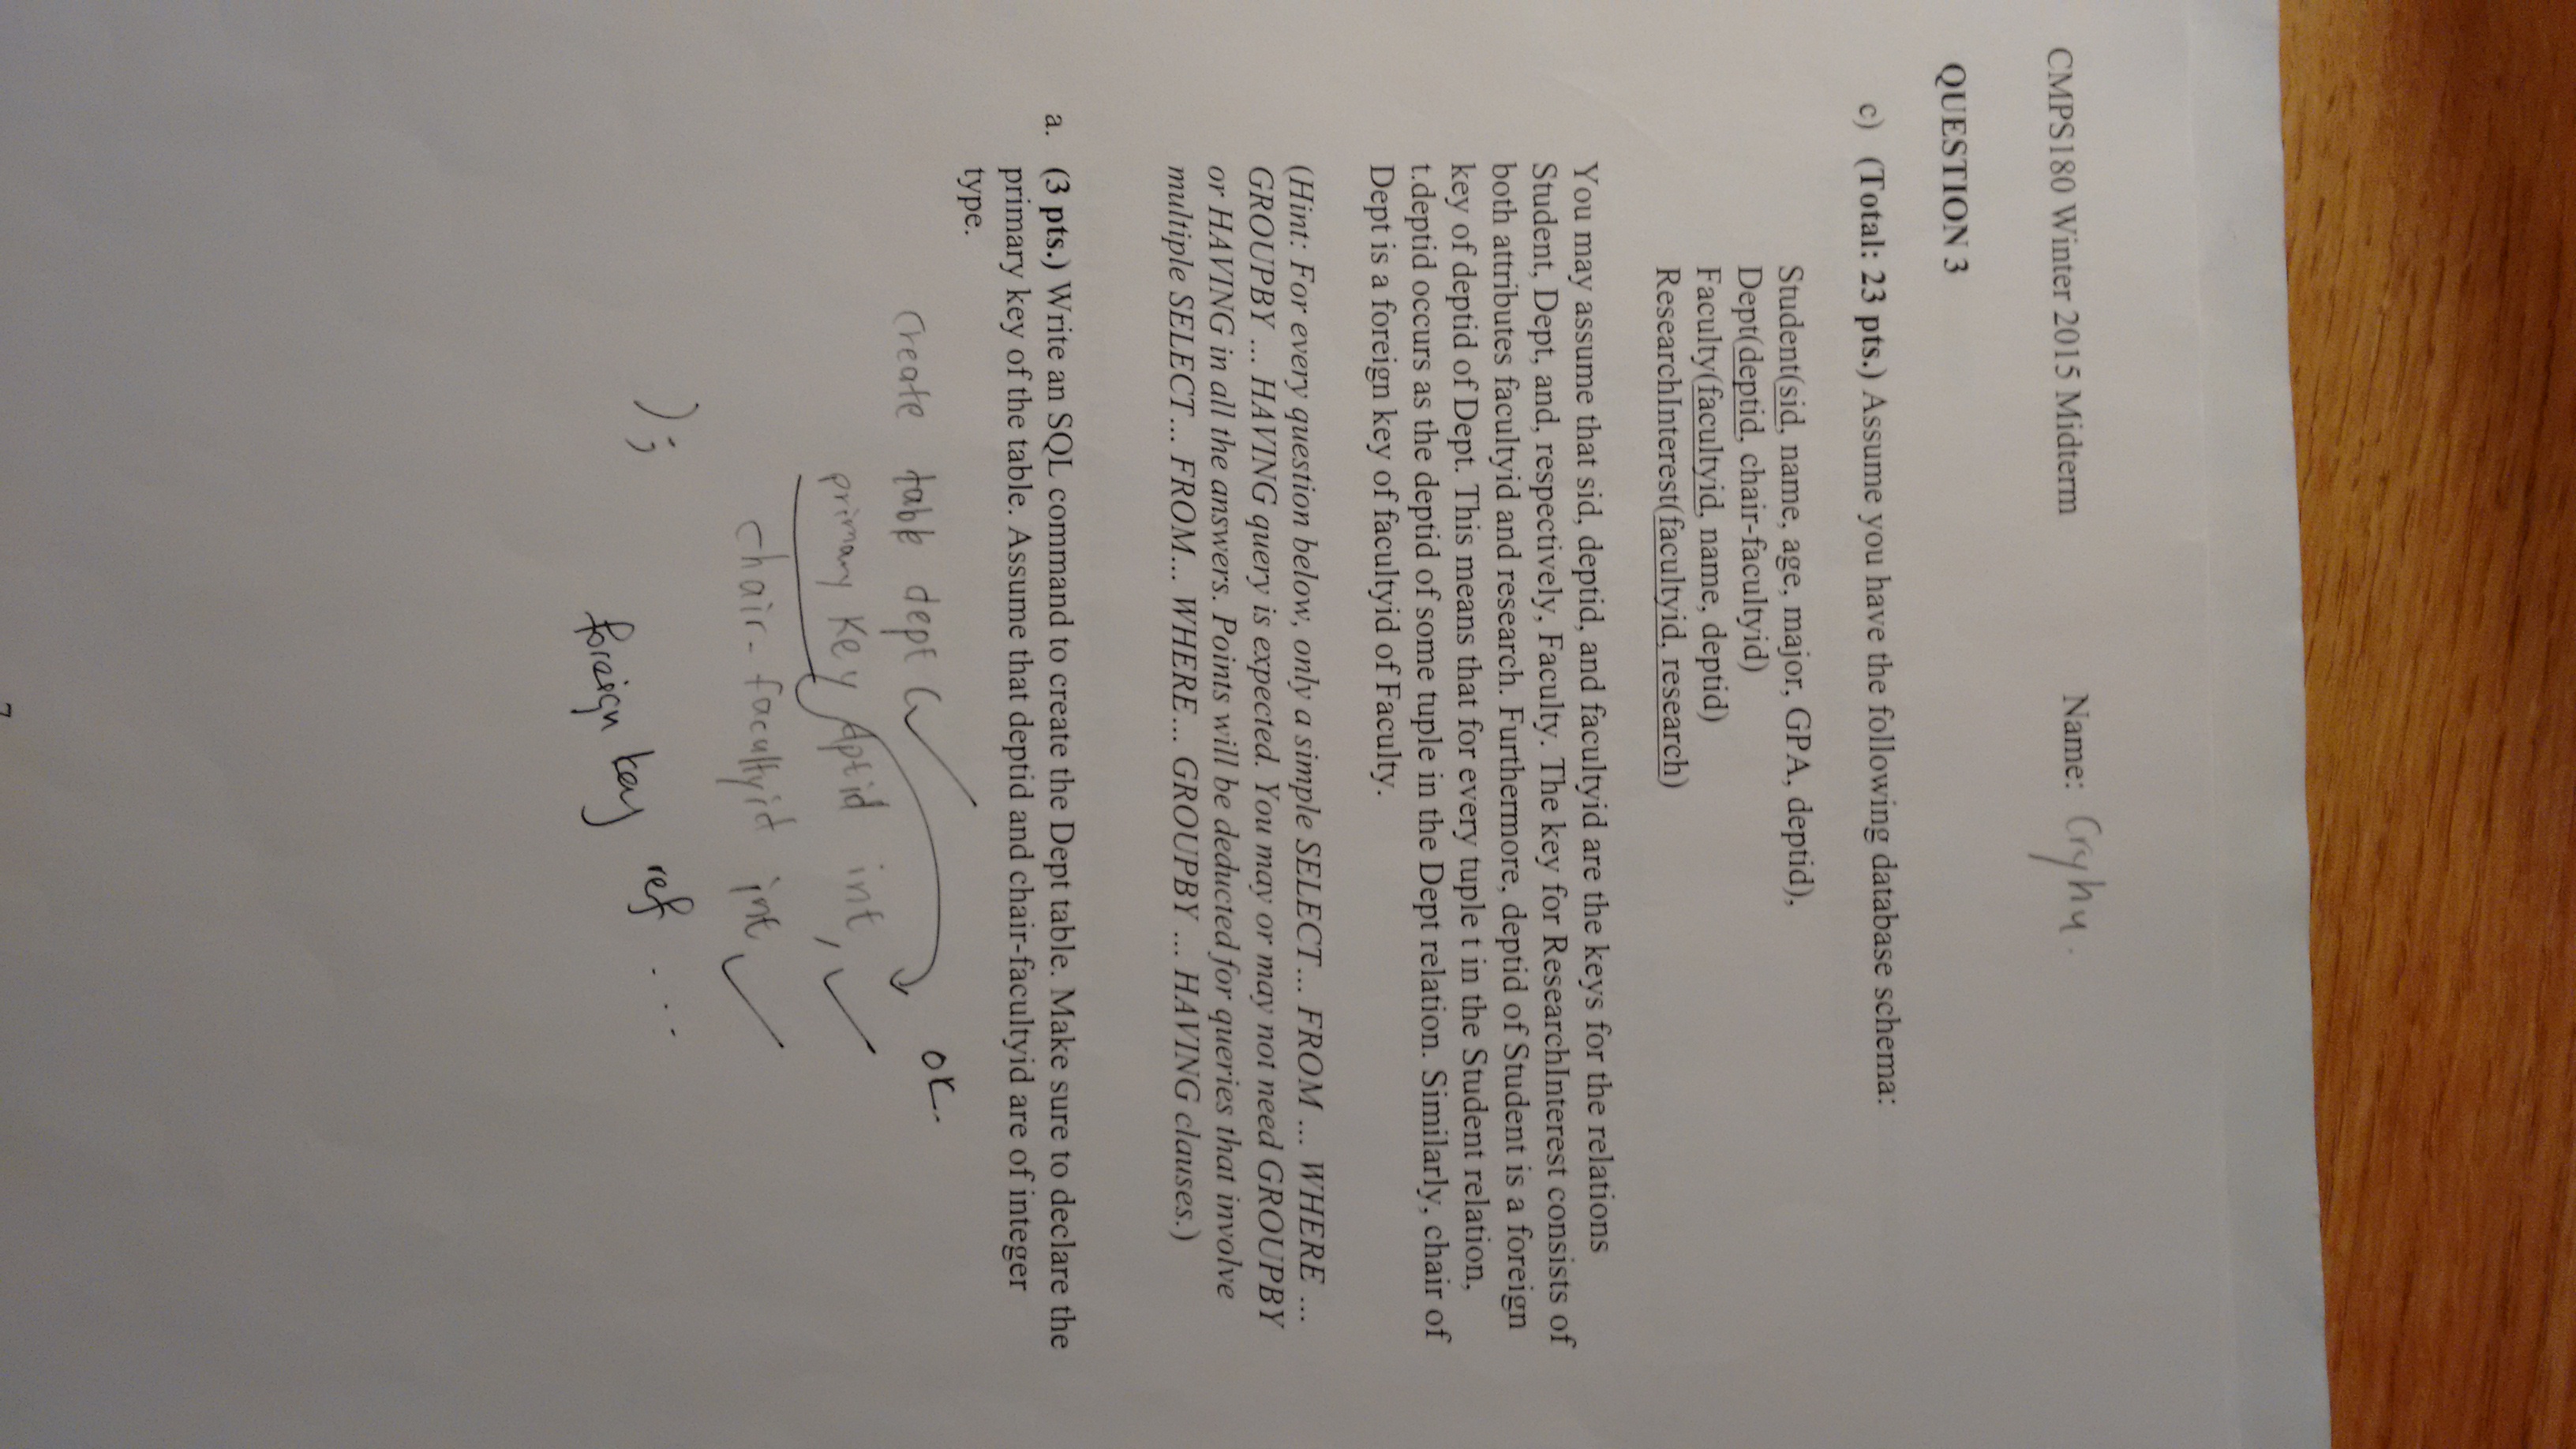 CMPS180 Winter 2015 Midterm Name: Cryhu.
QUESTION 3
c) (Total: 23 pts.) Assume you have the following database schema:
Student(sid, name, age, major, GPA, deptid),
Dept(deptid, chair-facultyid)
Faculty(facultyid, name, deptid)
ResearchInterest(facultyid, research)
You may assume that sid, deptid, and facultyid are the keys for the relations
Student, Dept, and, respectively, Faculty. The key for ResearchInterest consists of
both attributes facultyid and research. Furthermore, deptid of Student is a foreign
key of deptid of Dept. This means that for every tuple t in the Student relation,
t.deptid occurs as the deptid of some tuple in the Dept relation. Similarly, chair of
Dept is a foreign key of facultyid of Faculty.
(Hint: For every question below, only a simple SELECT... FROM ... WHERE ...
GROUPBY ... HAVING query is expected. You may or may not need GROUPBY
or HAVING in all the answers. Points will be deducted for queries that involve
multiple SELECT... FROM... WHERE... GROUPBY ... HAVING clauses.)
a. (3 pts.) Write an SQL command to create the Dept table. Make sure to declare the
primary key of the table. Assume that deptid and chair-facultyid are of integer
type.
Create table dept (
ok.
primary key dptid int,
chair-facultyid int
);
foreign key ref ...
7